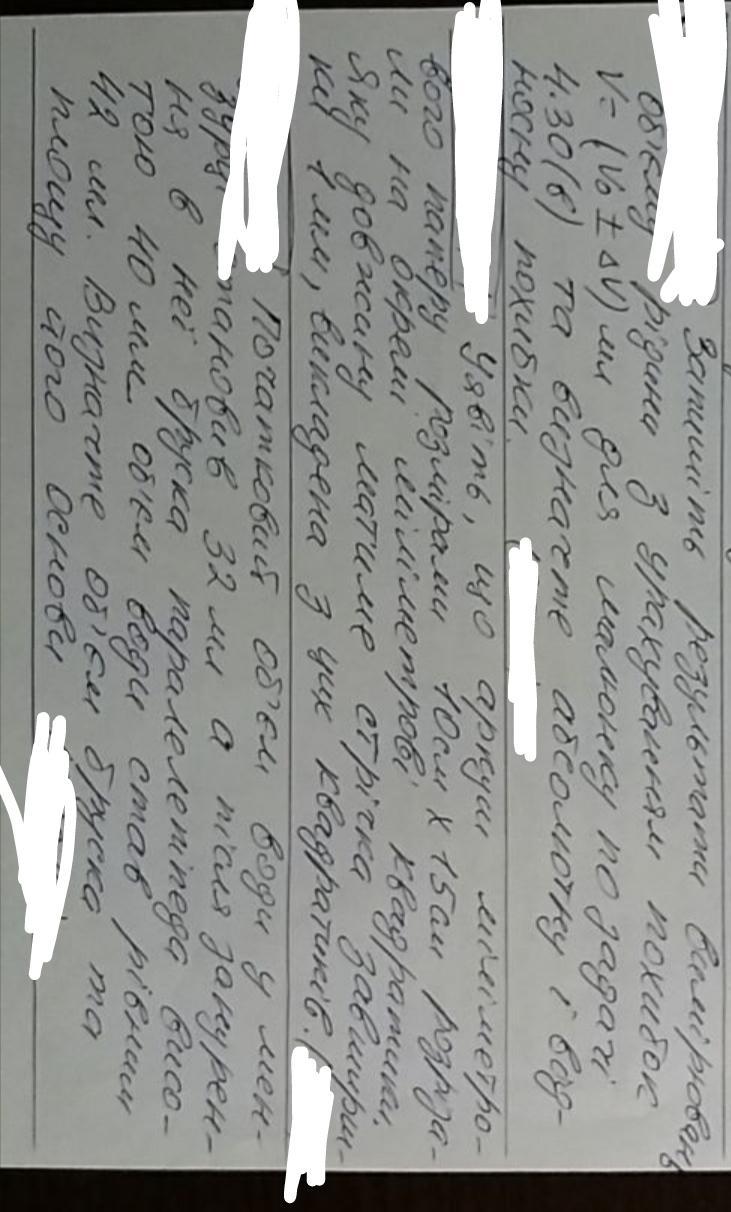 Запишіть результати вимірювань
об'єму рідини з урахуванням похибок
V = (V₀ ± ΔV) мл для малюнку по задачі
4.30(в) та визначте абсолютну і від-
носну похибки.
Уявіть, що аркуш міліметро-
вого паперу розмірами 10см х 15см розріза-
ли на окремі міліметрові квадратики.
Яку довжину матиме стрічка завширш-
ки 1 мм, викладена з цих квадратиків.
Початковий об'єм води у мен-
зурці становив 32 мл а після занурен-
ня в неї бруска паралелепіпеда висо-
тою 40 мм об'єм води став рівним
42 мл. Визначте об'єм бруска та
площу його основи